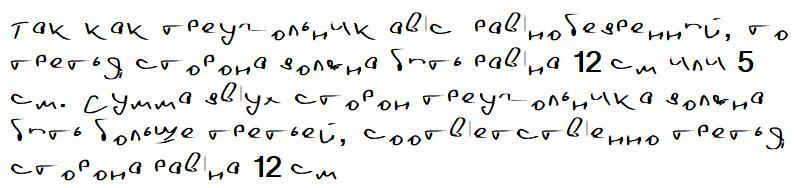 Так как треугольник авс равнобедренный, то
третья сторона должна быть равна 12 см или 5
см. Сумма двух сторон треугольника должна
быть больше третьей, соответственно третья
сторона равна 12 см